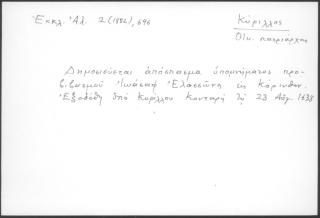 Ἐκκλ. Ἀλ. 2 (1882), 696
Κύριλλος
Οἰκ. πατριάρχης
Δημοσιεύεται ἀπόσπασμα ὑπομνήματος προ-
βιβασμοῦ Ἰωάσαφ Ἐλασσῶνος εἰς Κόρινθον.
Ἐξεδόθη ὑπὸ Κυρίλλου Κονταρῆ τῇ 23 Αὐγ. 1638